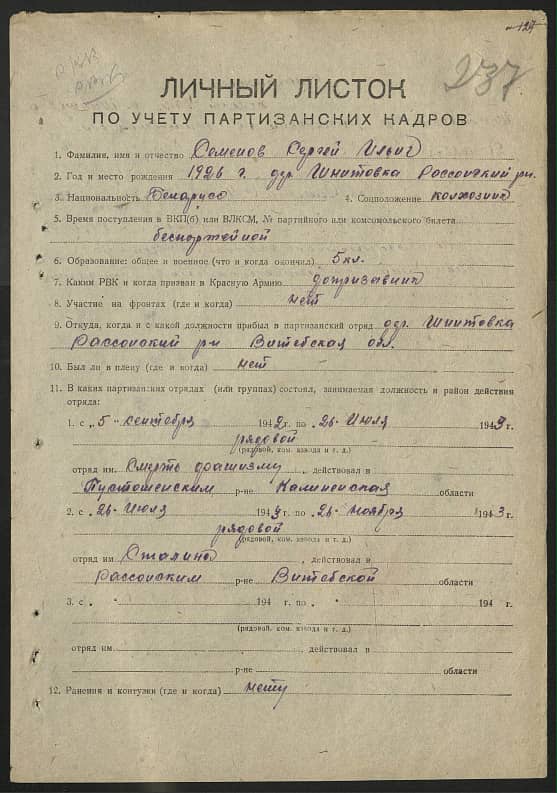 127
237
ЛИЧНЫЙ ЛИСТОК
ПО УЧЕТУ ПАРТИЗАНСКИХ КАДРОВ
1. Фамилия, имя и отчество Семенов Сергей Ильич
2. Год и место рождения 1926 г. дер. Шнитовка Россонский рн.
3. Национальность Беларусс 4. Соцположение колхозник
5. Время поступления в ВКП(б) или ВЛКСМ, № партийного или комсомольского билета
беспортейной
6. Образование: общее и военное (что и когда окончил) 5 кл.
7. Каким РВК и когда призван в Красную Армию допризавник
8. Участие на фронтах (где и когда) нет
9. Откуда, когда и с какой должности прибыл в партизанский отряд дер. Шнитовка
Россонский р-н Витебская обл.
10. Был ли в плену (где и когда) нет
11. В каких партизанских отрядах (или группах) состоял, занимаемая должность и район действия
отряда:
1. с „5" сентября 1942 г. по „26" Июля 1943 г.
рядовой
(рядовой, ком. взвода и т. д.)
отряд им. Смерть фашизму, действовал в
Пустошенским р-не Калиненская области
2. с „26" Июля 1943 г. по „26" ноября 1943 г.
рядовой
(рядовой, ком. взвода и т. д.)
отряд им Сталина, действовал в
Россонским р-не Витебской области
3. с „ " 194 г. по „ " 194 г.
(рядовой, ком. взвода и т. д.)
отряд им. действовал в
р-не области
12. Ранения и контузии (где и когда) нету